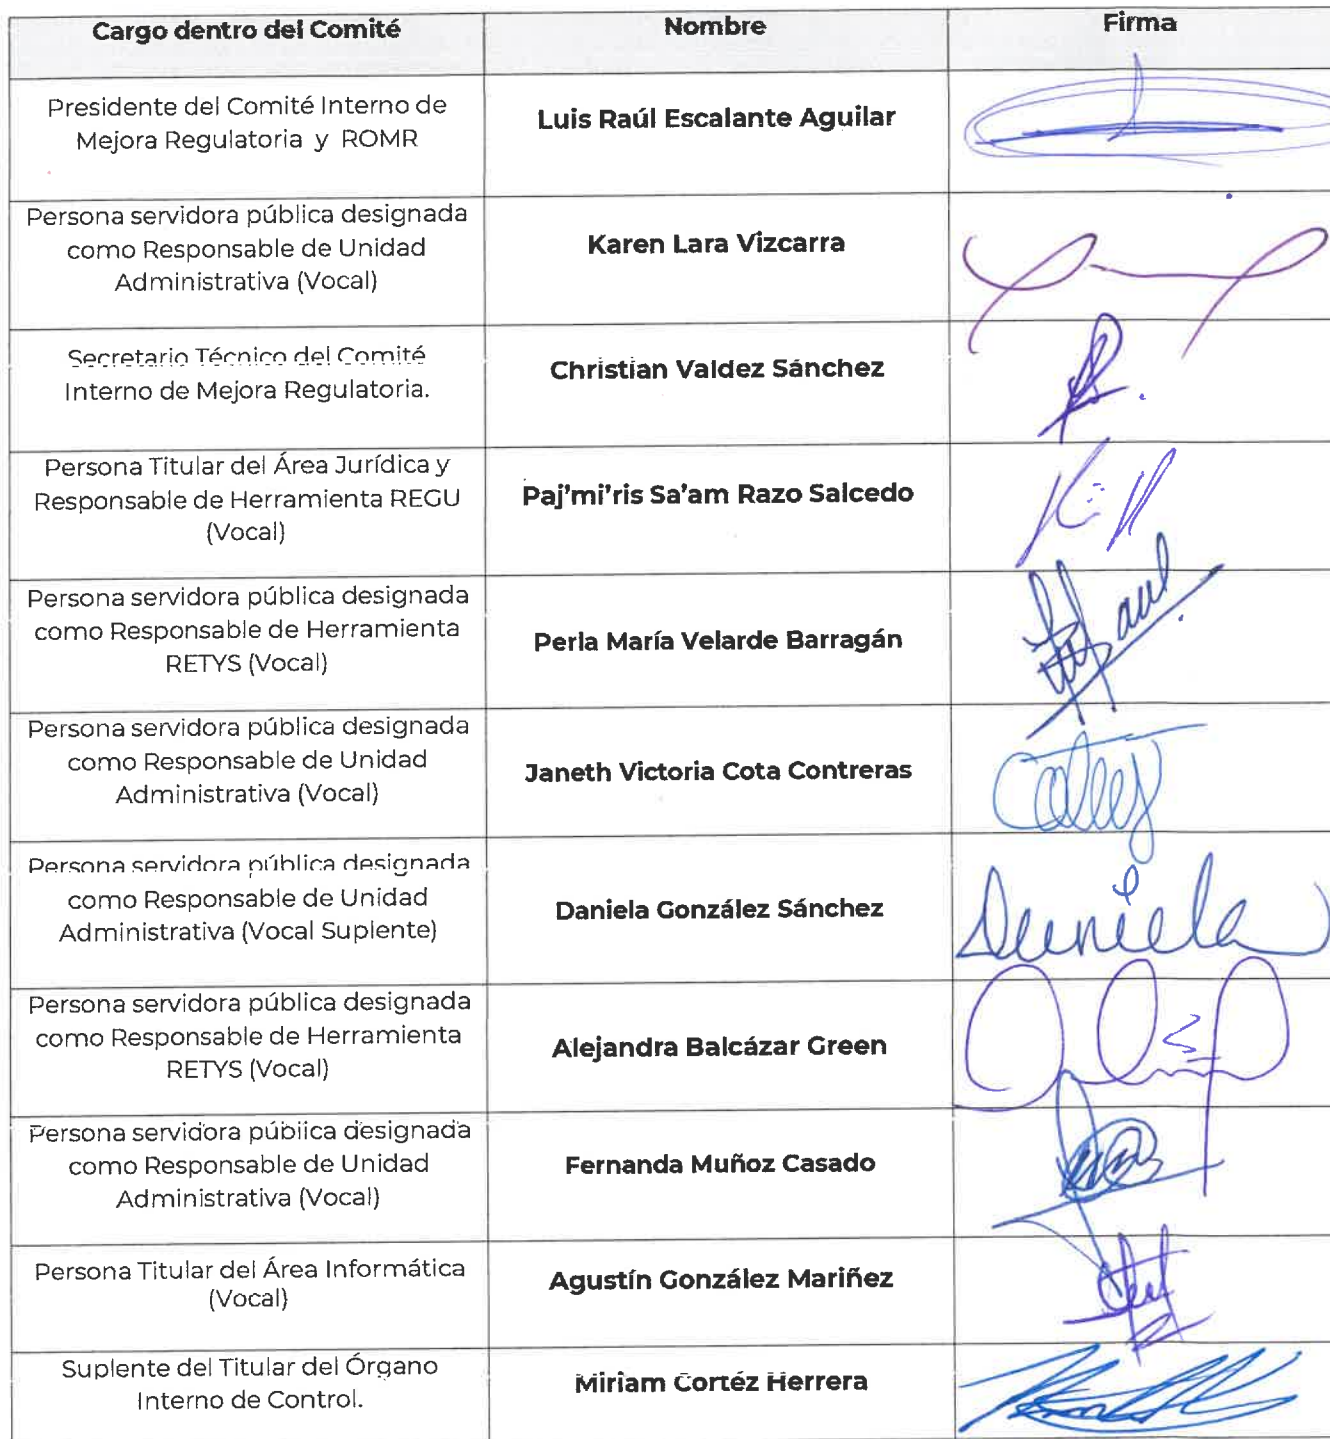 Cargo dentro del Comité Nombre Firma
Presidente del Comité Interno de
Mejora Regulatoria y ROMR
Luis Raúl Escalante Aguilar
Persona servidora pública designada
como Responsable de Unidad
Administrativa (Vocal)
Karen Lara Vizcarra
Secretario Técnico del Comité
Interno de Mejora Regulatoria.
Christian Valdez Sánchez
Persona Titular del Área Jurídica y
Responsable de Herramienta REGU
(Vocal)
Paj’mi’ris Sa’am Razo Salcedo
Persona servidora pública designada
como Responsable de Herramienta
RETYS (Vocal)
Perla María Velarde Barragán
Persona servidora pública designada
como Responsable de Unidad
Administrativa (Vocal)
Janeth Victoria Cota Contreras
Persona servidora pública designada
como Responsable de Unidad
Administrativa (Vocal Suplente)
Daniela González Sánchez
Daniela
Persona servidora pública designada
como Responsable de Herramienta
RETYS (Vocal)
Alejandra Balcázar Green
Persona servidora pública designada
como Responsable de Unidad
Administrativa (Vocal)
Fernanda Muñoz Casado
Persona Titular del Área Informática
(Vocal)
Agustín González Mariñez
Suplente del Titular del Órgano
Interno de Control.
Miriam Cortéz Herrera